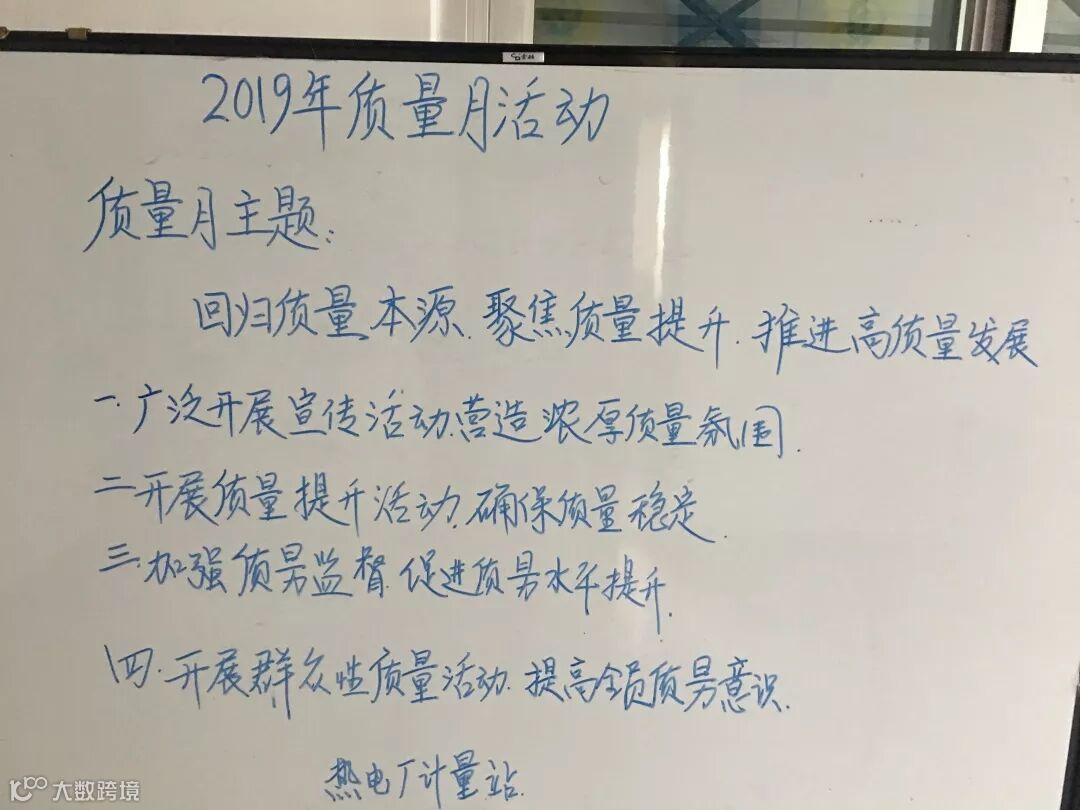 2019年质量月活动
质量月主题:
回归质量本源、聚焦质量提升、推进高质量发展
一.广泛开展宣传活动、营造浓厚质量氛围.
二.开展质量提升活动、确保质量稳定
三.加强质量监督、促进质量水平提升.
四.开展群众性质量活动、提高全员质量意识.
热电厂计量站
大数跨境